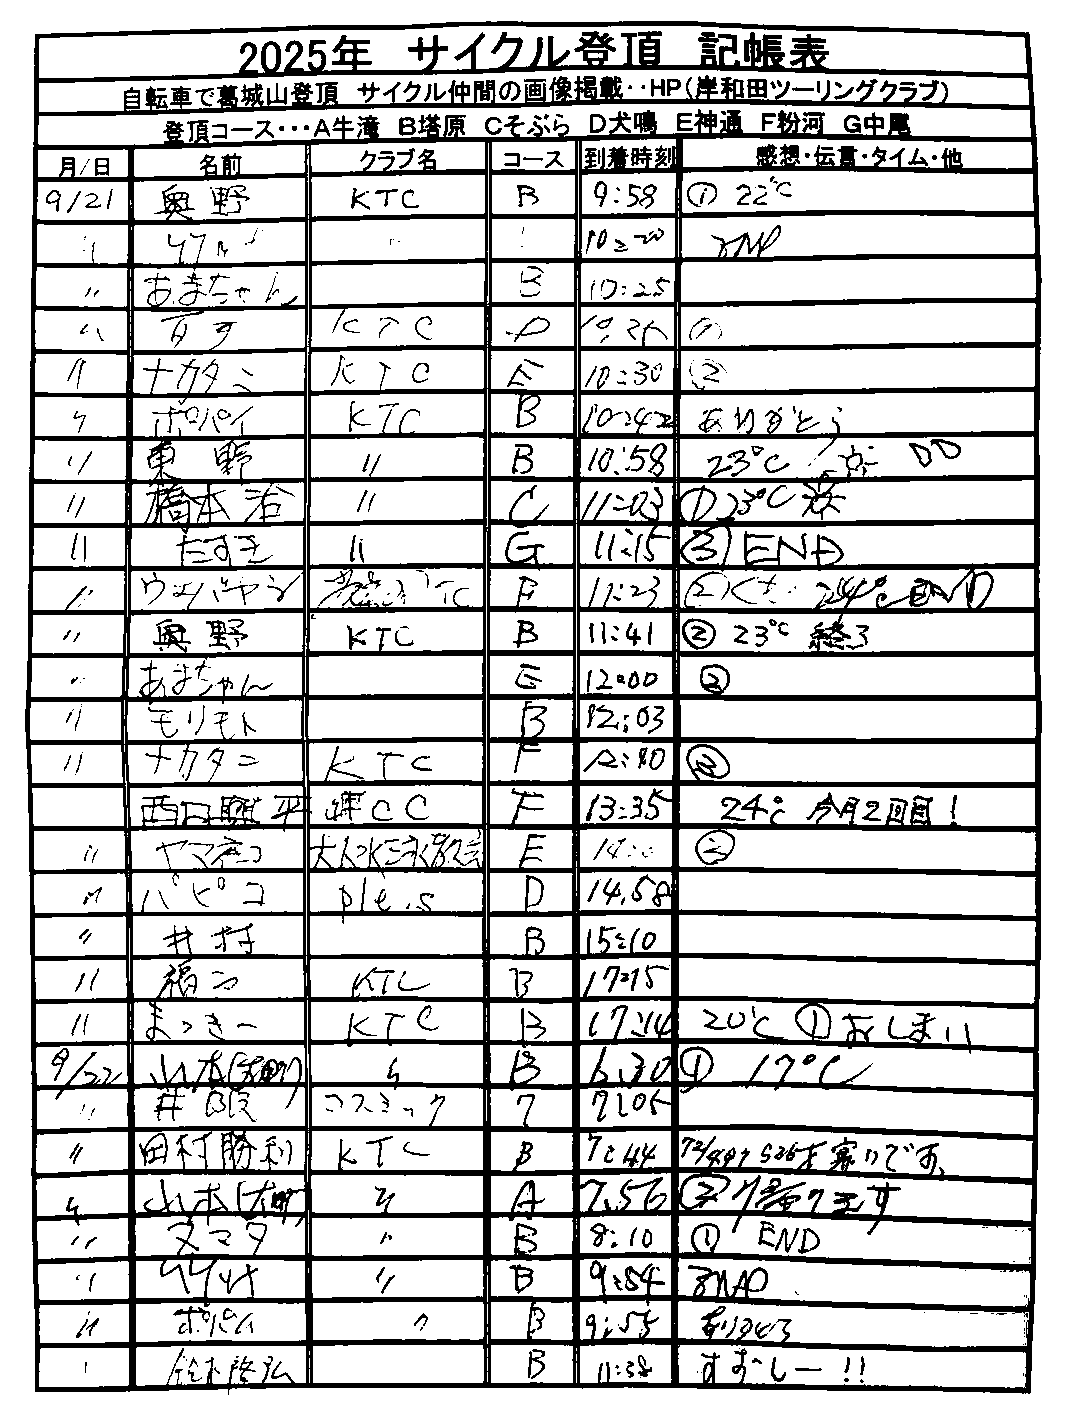 2025年 サイクル登頂 記帳表
自転車で葛城山登頂 サイクル仲間の画像掲載‥HP(岸和田ツーリングクラブ)
登頂コース･･･A牛滝 B塔原 Cそぶら D犬鳴 E神通 F粉河 G中尾
月/日 名前 クラブ名 コース 到着時刻 感想・伝言・タイム・他
9/21 奥野 KTC B 9:58 ① 22℃
〃 〃 10:20
〃 あまちゃん B 10:25
〃 KTC
〃 ナカタニ KTC E 10:30 ②
〃 ポパイ KTC B 10:42 ありがとう
〃 東野 〃 B 10:58 23℃
〃 橋本治 〃 C 11:03 ① 23℃
〃 たすき 〃 G 11:15 ③ END
〃 F 11:23 ② 24℃ END
〃 奥野 KTC B 11:41 ② 23℃ 終了
〃 あまちゃん G 12:00 ②
〃 モリモト B 12:03
〃 ナカタニ KTC F ③
西口興平 輝CC F 13:35 24℃ 今月2回目!
〃 ヤマネコ E ②
〃 パピコ D 14.58
〃 井村 B 15:10
〃 KTC B 17:15
〃 まっきー KTC B 17:14 20℃ ① おしまい
9/22 山本 〃 B 6.30 ① 17℃
〃 コスミック 7:05
〃 田村勝利 KTC B 7:44 寒いです。
〃 山本 〃 A 7.56 ② 帰ります
〃 ヌマタ 〃 B 8:10 ① END
〃 〃 B 9:54
〃 ポパイ 〃 B 9:55
〃 鈴木隆弘 B 11:38 すずしー!!